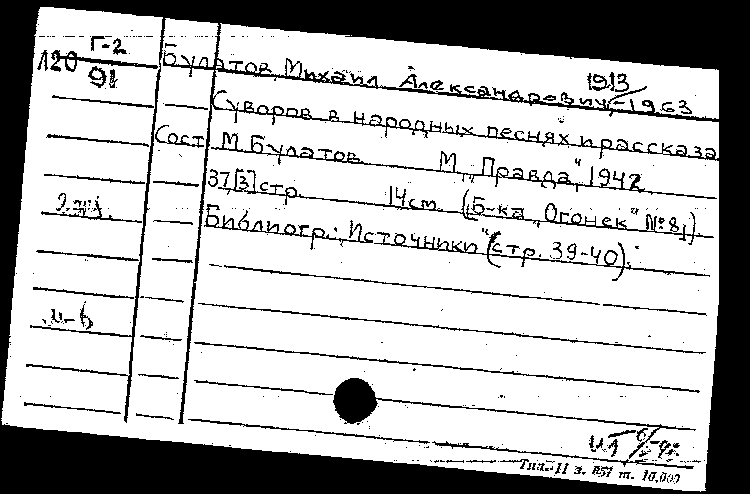 Г-2
Л20
91
Булатов, Михаил Александрович, 1913-1963
Суворов в народных песнях и рассказа
Сост М. Булатов М., „Правда“, 1942
37,[3] стр. 14 см. (Б-ка „Огонек“ № 81).
Библиогр.: „Источники“ (стр. 39-40).
2 экз.
М-Б
Тип. 11 з. 857 т. 10.000